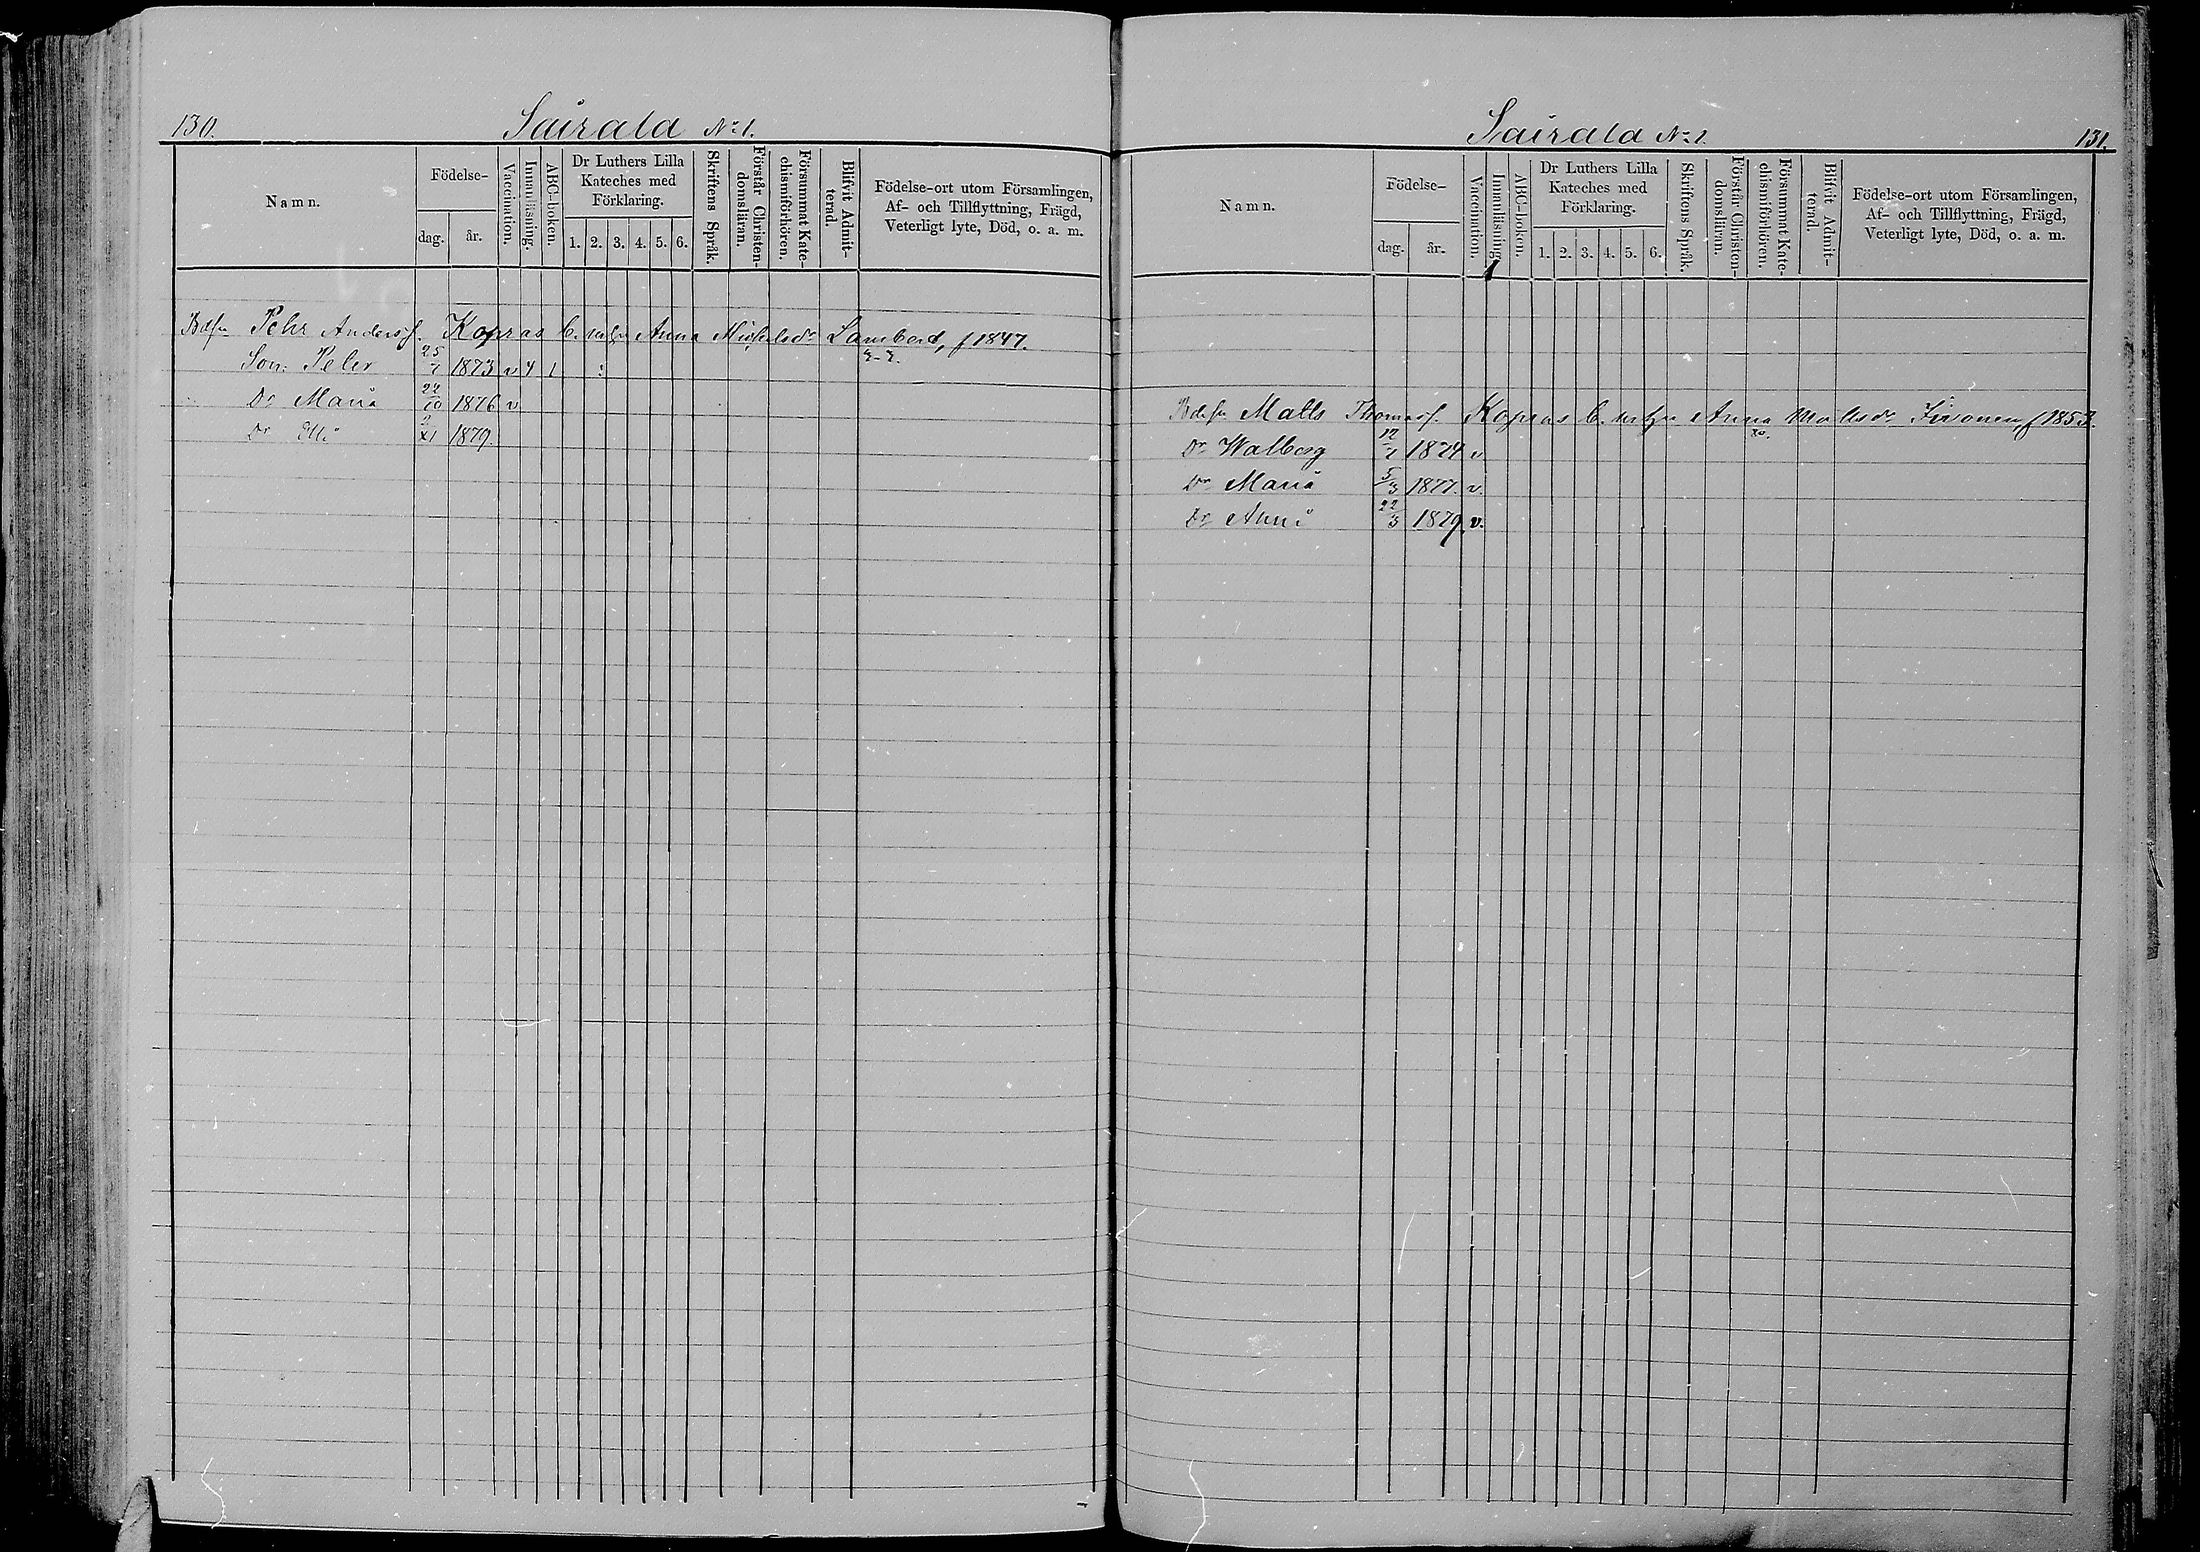 130.
Sairala No 1.
Namn.
Födelse-
dag.
år.
Vaccination.
Innanläsning.
ABC-boken.
Dr Luthers Lilla
Kateches med
Förklaring.
1. 2. 3. 4. 5. 6.
Skriftens Språk.
Förstår Christen-
domsläran.
Försummat Kate-
chismiförhören.
Blifvit Admit-
terad.
Födelse-ort utom Församlingen,
Af- och Tillflyttning, Frägd,
Veterligt lyte, Död, o. a. m.
Pehr Anderss. Kopras Anna Michelsdr f 1847.
Son: Peter 25/7 1873 v 4 1
Dr Maria 1876 v
Dr Elli 1879.
Sairala No 1.
131.
Namn.
Födelse-
dag.
år.
Vaccination.
Innanläsning.
ABC-boken.
Dr Luthers Lilla
Kateches med
Förklaring.
1. 2. 3. 4. 5. 6.
Skriftens Språk.
Förstår Christen-
domsläran.
Försummat Kate-
chismiförhören.
Blifvit Admit-
terad.
Födelse-ort utom Församlingen,
Af- och Tillflyttning, Frägd,
Veterligt lyte, Död, o. a. m.
Matts Thomass. Kopras Anna Mattsdr f 1853.
Dr Walborg 1874 v
Dr Maria 5/3 1877. v.
Dr Anni 22/3 1879. v.